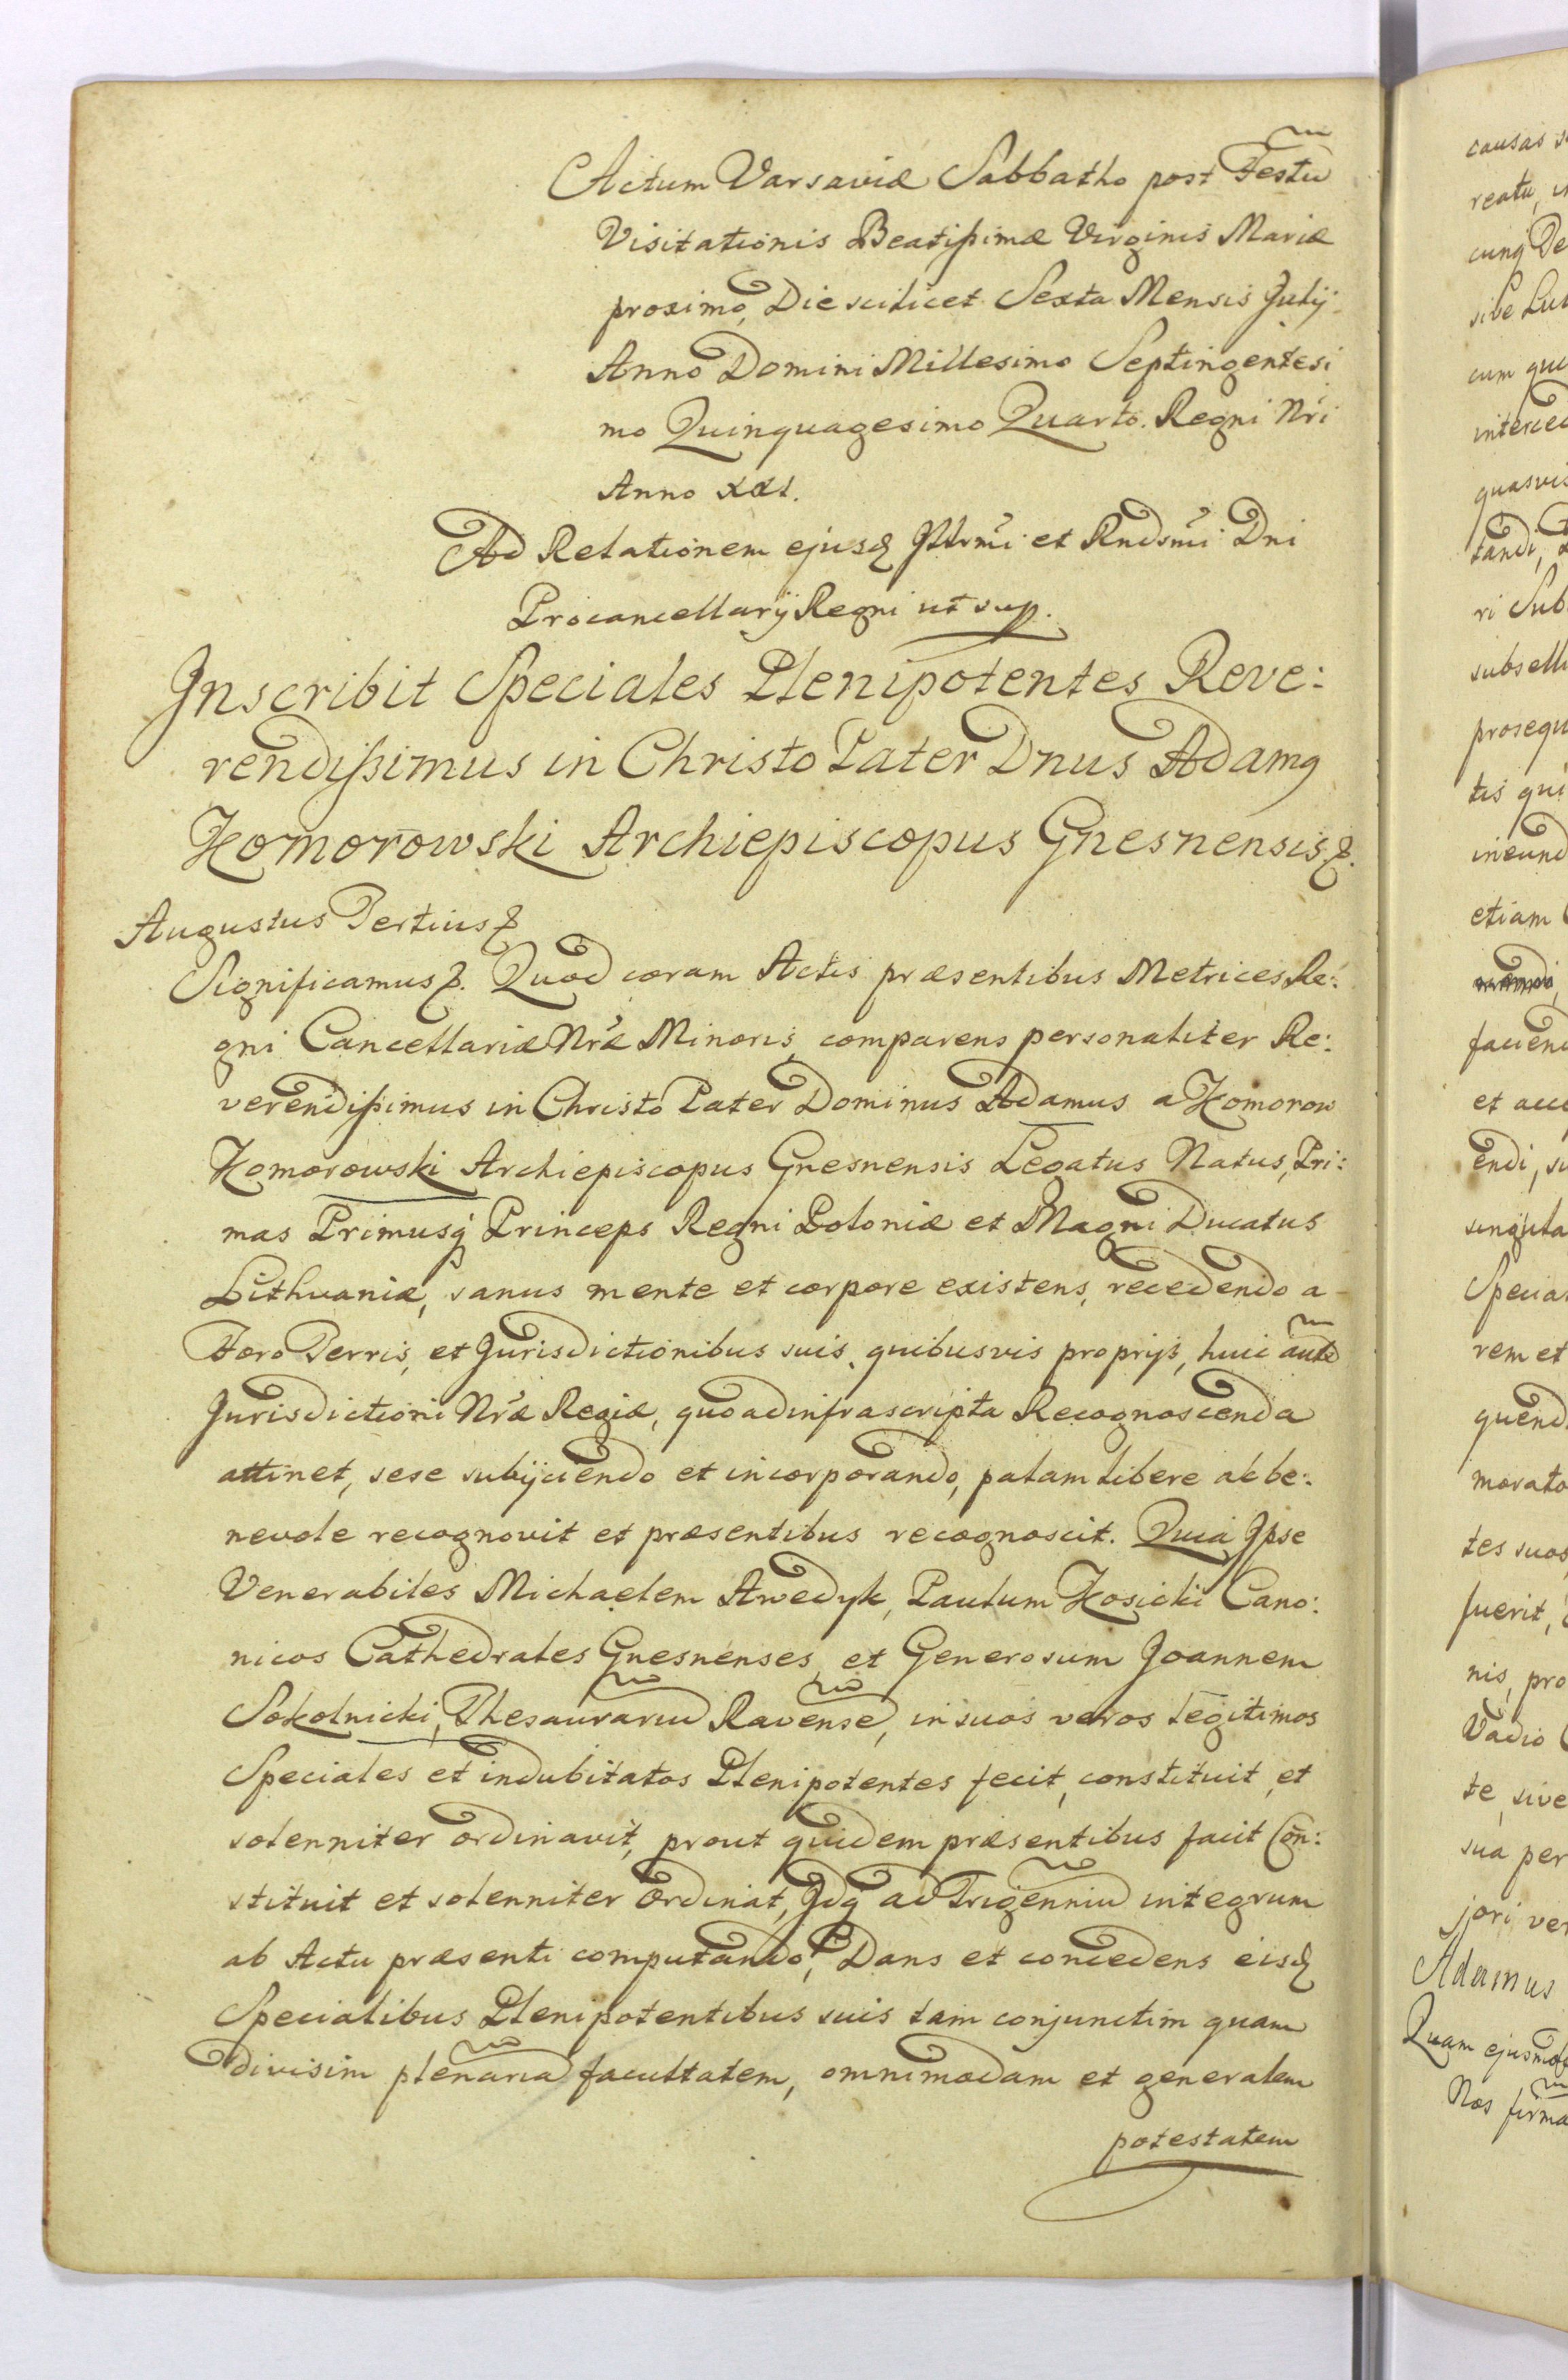 Actum Varsaviæ Sabbatho post Festũ
Visitationis Beatißimæ Virginis Mariæ
proximo, Die scilicet Sexta Mensis Julij.
Anno Domini Millesimo Septingentesi
mo Quinquagesimo Quarto. Regni Nri
Anno XXI.
Ad Relationem ejusq Illrmi et Rndsmi Dni
Procancellarij Regni ut sup.
Inscribit Speciales Plenipotentes Reve:
rendißimus in Christo Pater Dnus Adamq
Komorowski Archiepiscopus Gnesnensis.
Augustus Tertius
Significamus. Quod coram Actis præsentibus Metrices Re:
gni Cancellariæ Nræ Minoris, comparens personaliter Re:
verendißimus in Christo Pater Dominus Adamus a Komorow
Komorowski Archiepiscopus Gnesnensis Legatus Natus, Pri:
mas Primusq Princeps Regni Poloniæ et Magni Ducatus
Lithvaniæ, sanus mente et corpore existens, recedendo a
Foro Terris, et Jurisdictionibus suis quibusvis proprijs, huic autẽ
Jurisdictioni Nræ Regiæ, quoad infrascripta Recognoscenda
attinet, sese subijciendo et incorporando, palam libere ac be:
nevole recognovit et præsentibus recognoscit. Quia Ipse
Venerabiles Michaelem Awedyk, Paulum Kosicki Cano:
nicos Cathedrales Gnesnenses, et Generosum Joannem
Sokolnicki, Thesaurariũ Ravensẽ, in suos veros legitimos
Speciales et indubitatos Plenipotentes fecit, constituit, et
solenniter ordinavit, prout quidem præsentibus facit Con:
stituit et solenniter ordinat, Idq ad Trigenniũ integrum
ab Actu præsenti computando, Dans et concedens eisq
Specialibus Plenipotentibus suis tam conjunctim quam
divisim plenariã facultatem, omnimodam et generalem
potestatem
causas
cunq
cum
quasvis
tandi,
ri Sub
prosequ
tis
etiam
et
endi,
rem et
tes suos
fuerit,
nis, pro
Vadio
te, sive
sua per
jori, ver
Adamus
Quam ejusmod
Nos firma